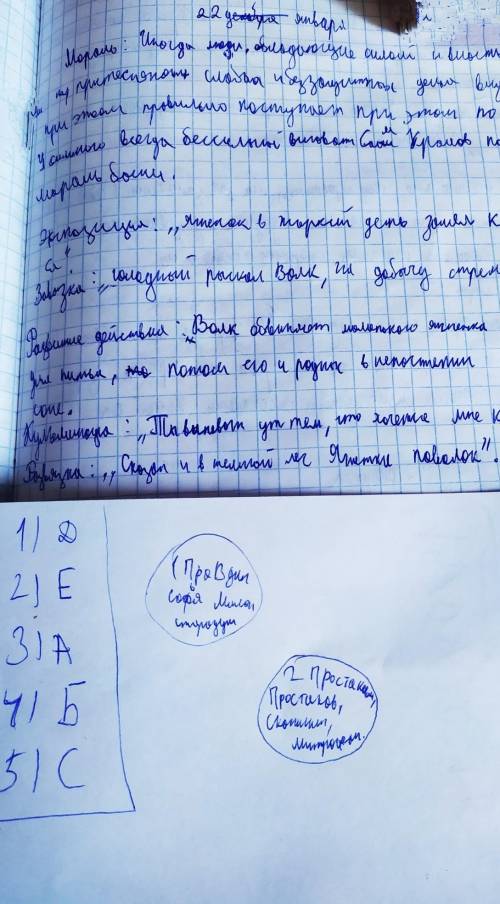 22 декабря января
Мораль: Иногда люди, обладающие силой и власть
притесняют слабых и беззащитных
при этом правильно поступает при этом по
У сильного всегда бессильный виноват Сам Крылов
мораль басни.
Экспозиция: „Ягненок в жаркий день зашел к
Завязка: „голодный рыскал Волк, на добычу стрем
Развитие действия: Волк обвиняет маленького ягненка
для питья, потом его и родных в непочтении
Кульминация: „Ты виноват уж тем, что хочется мне к
Развязка: „Сказал и в темный лес Ягненка поволок".
1) Д
2) Е
3) А
4) Б
5) С
1 Правдин
Софья Милон
стародум
2 Простакова,
Простаков,
Скотинин,
Митрофан.